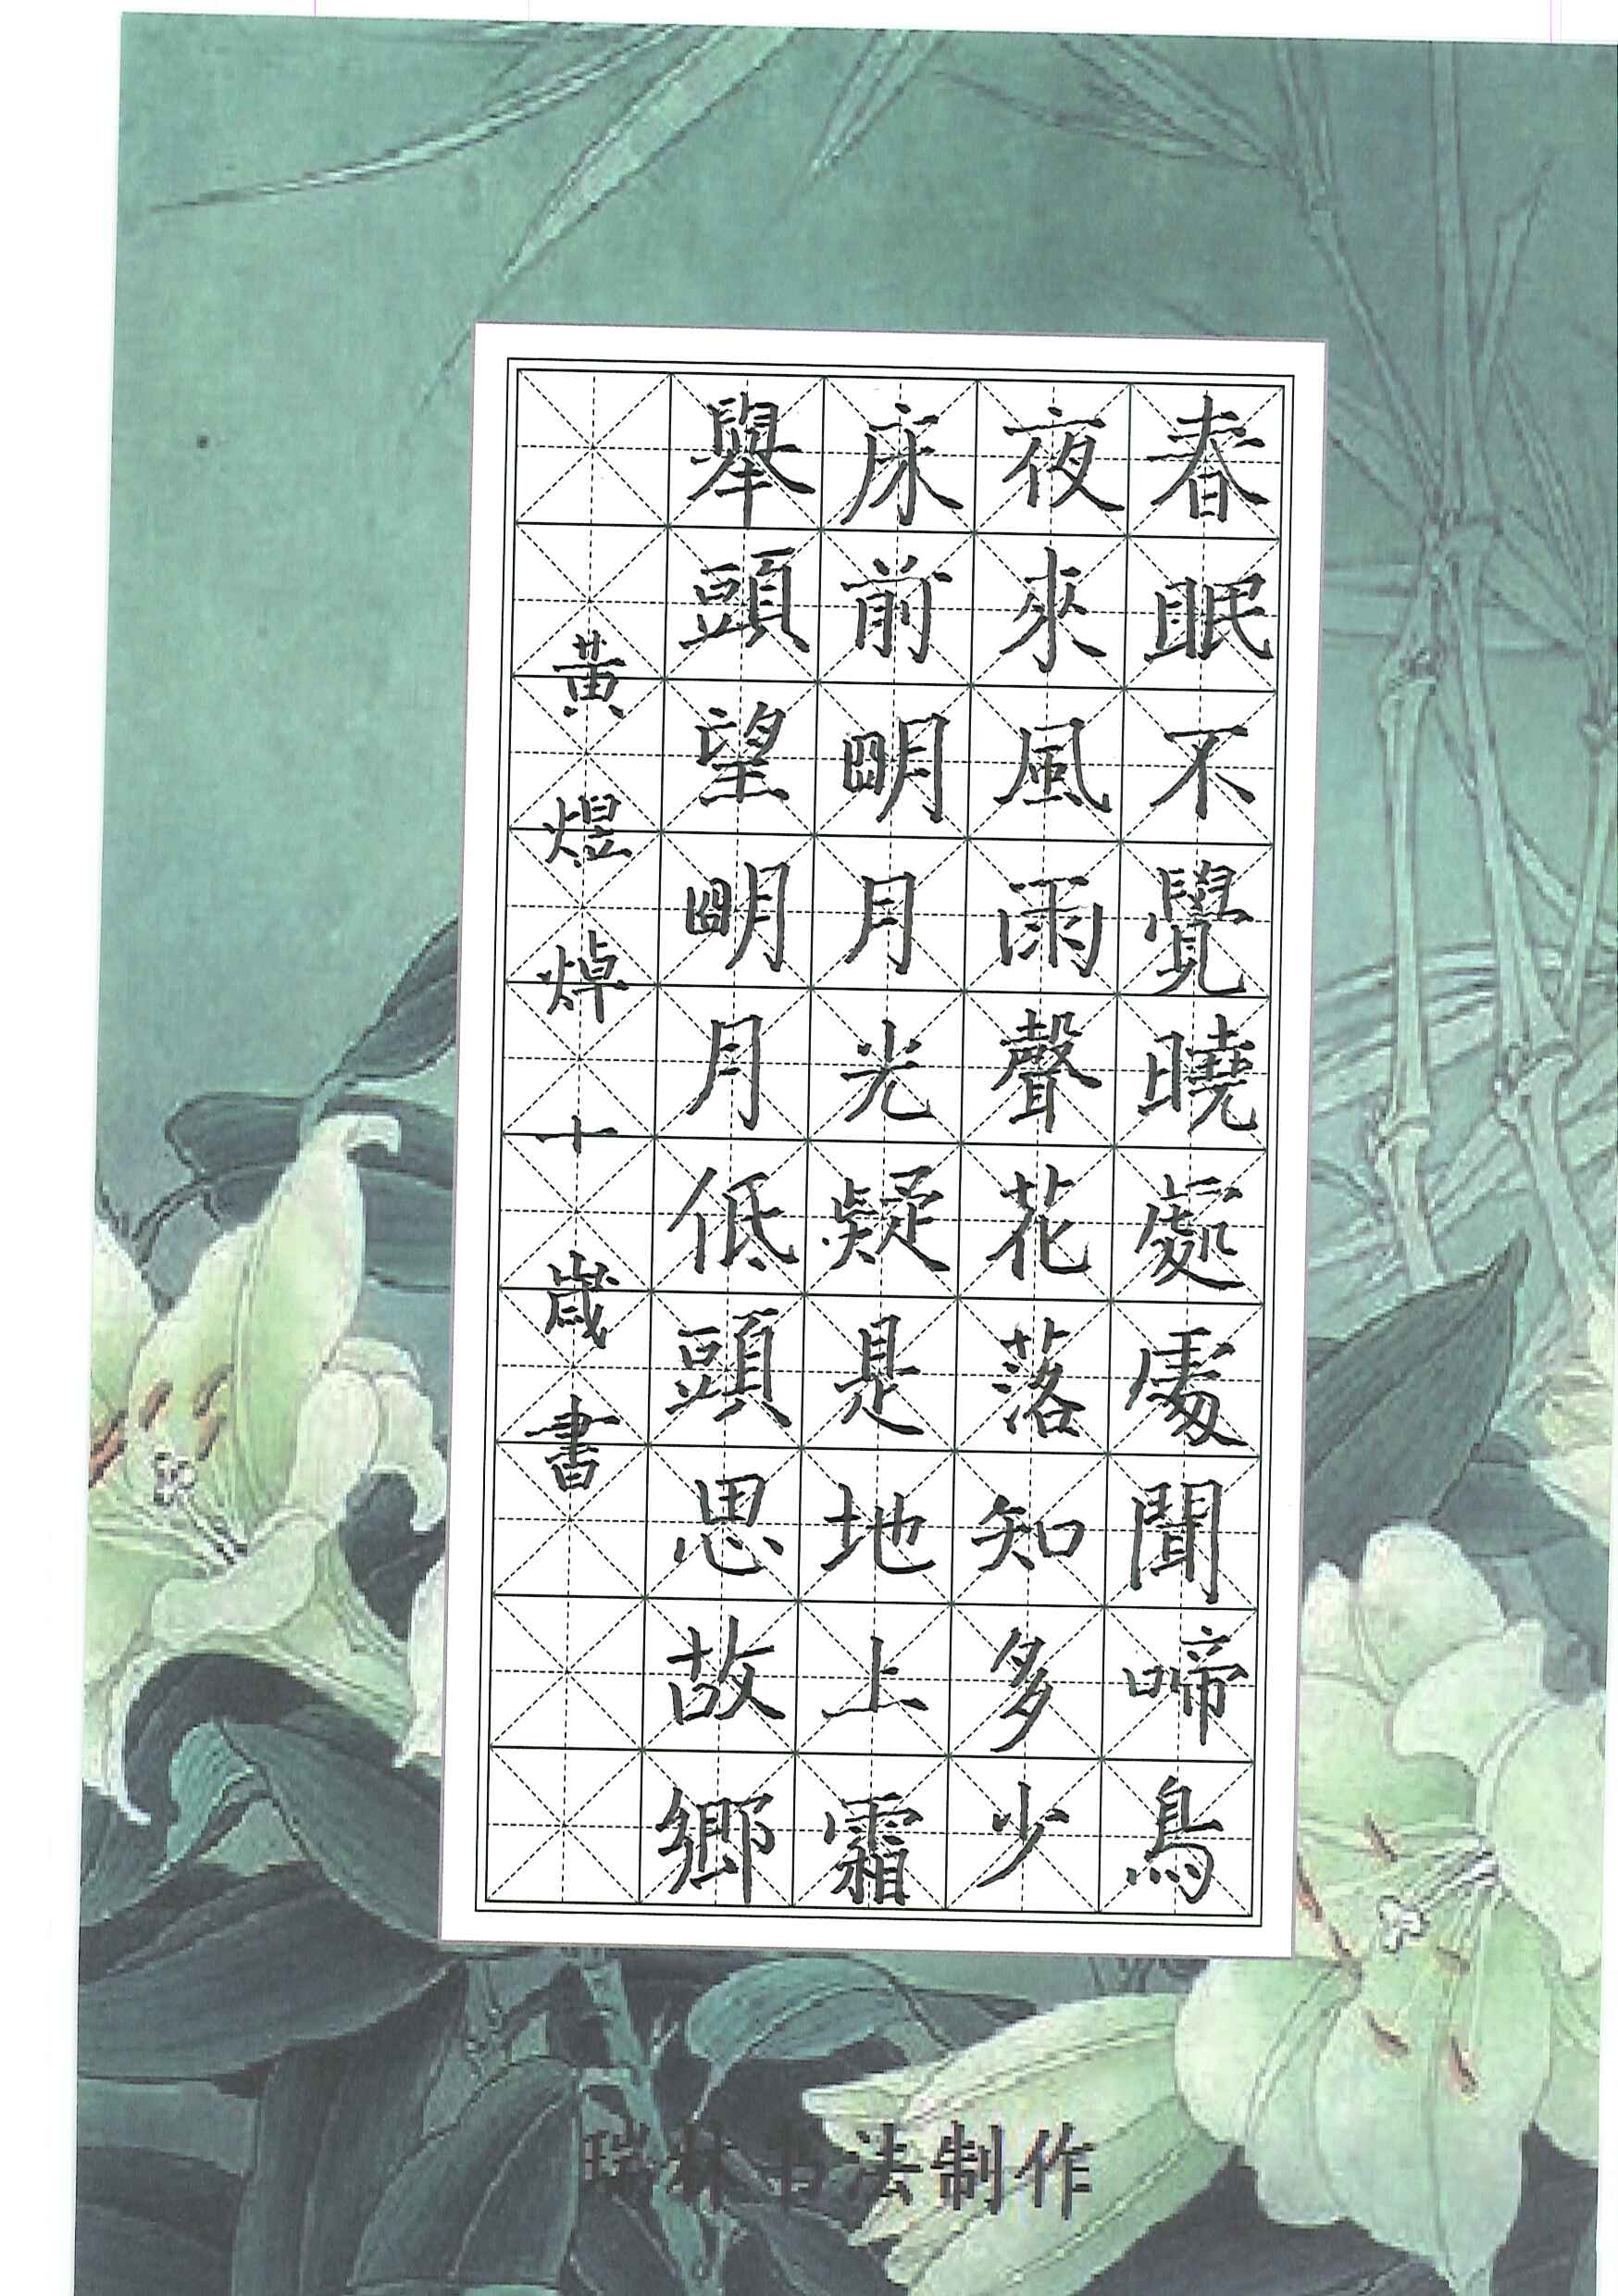 春眠不覺曉處處聞啼鳥
夜來風雨聲花落知多少
床前明月光疑是地上霜
舉頭望明月低頭思故鄉
黃煜焯十歲書
瑞林书法制作